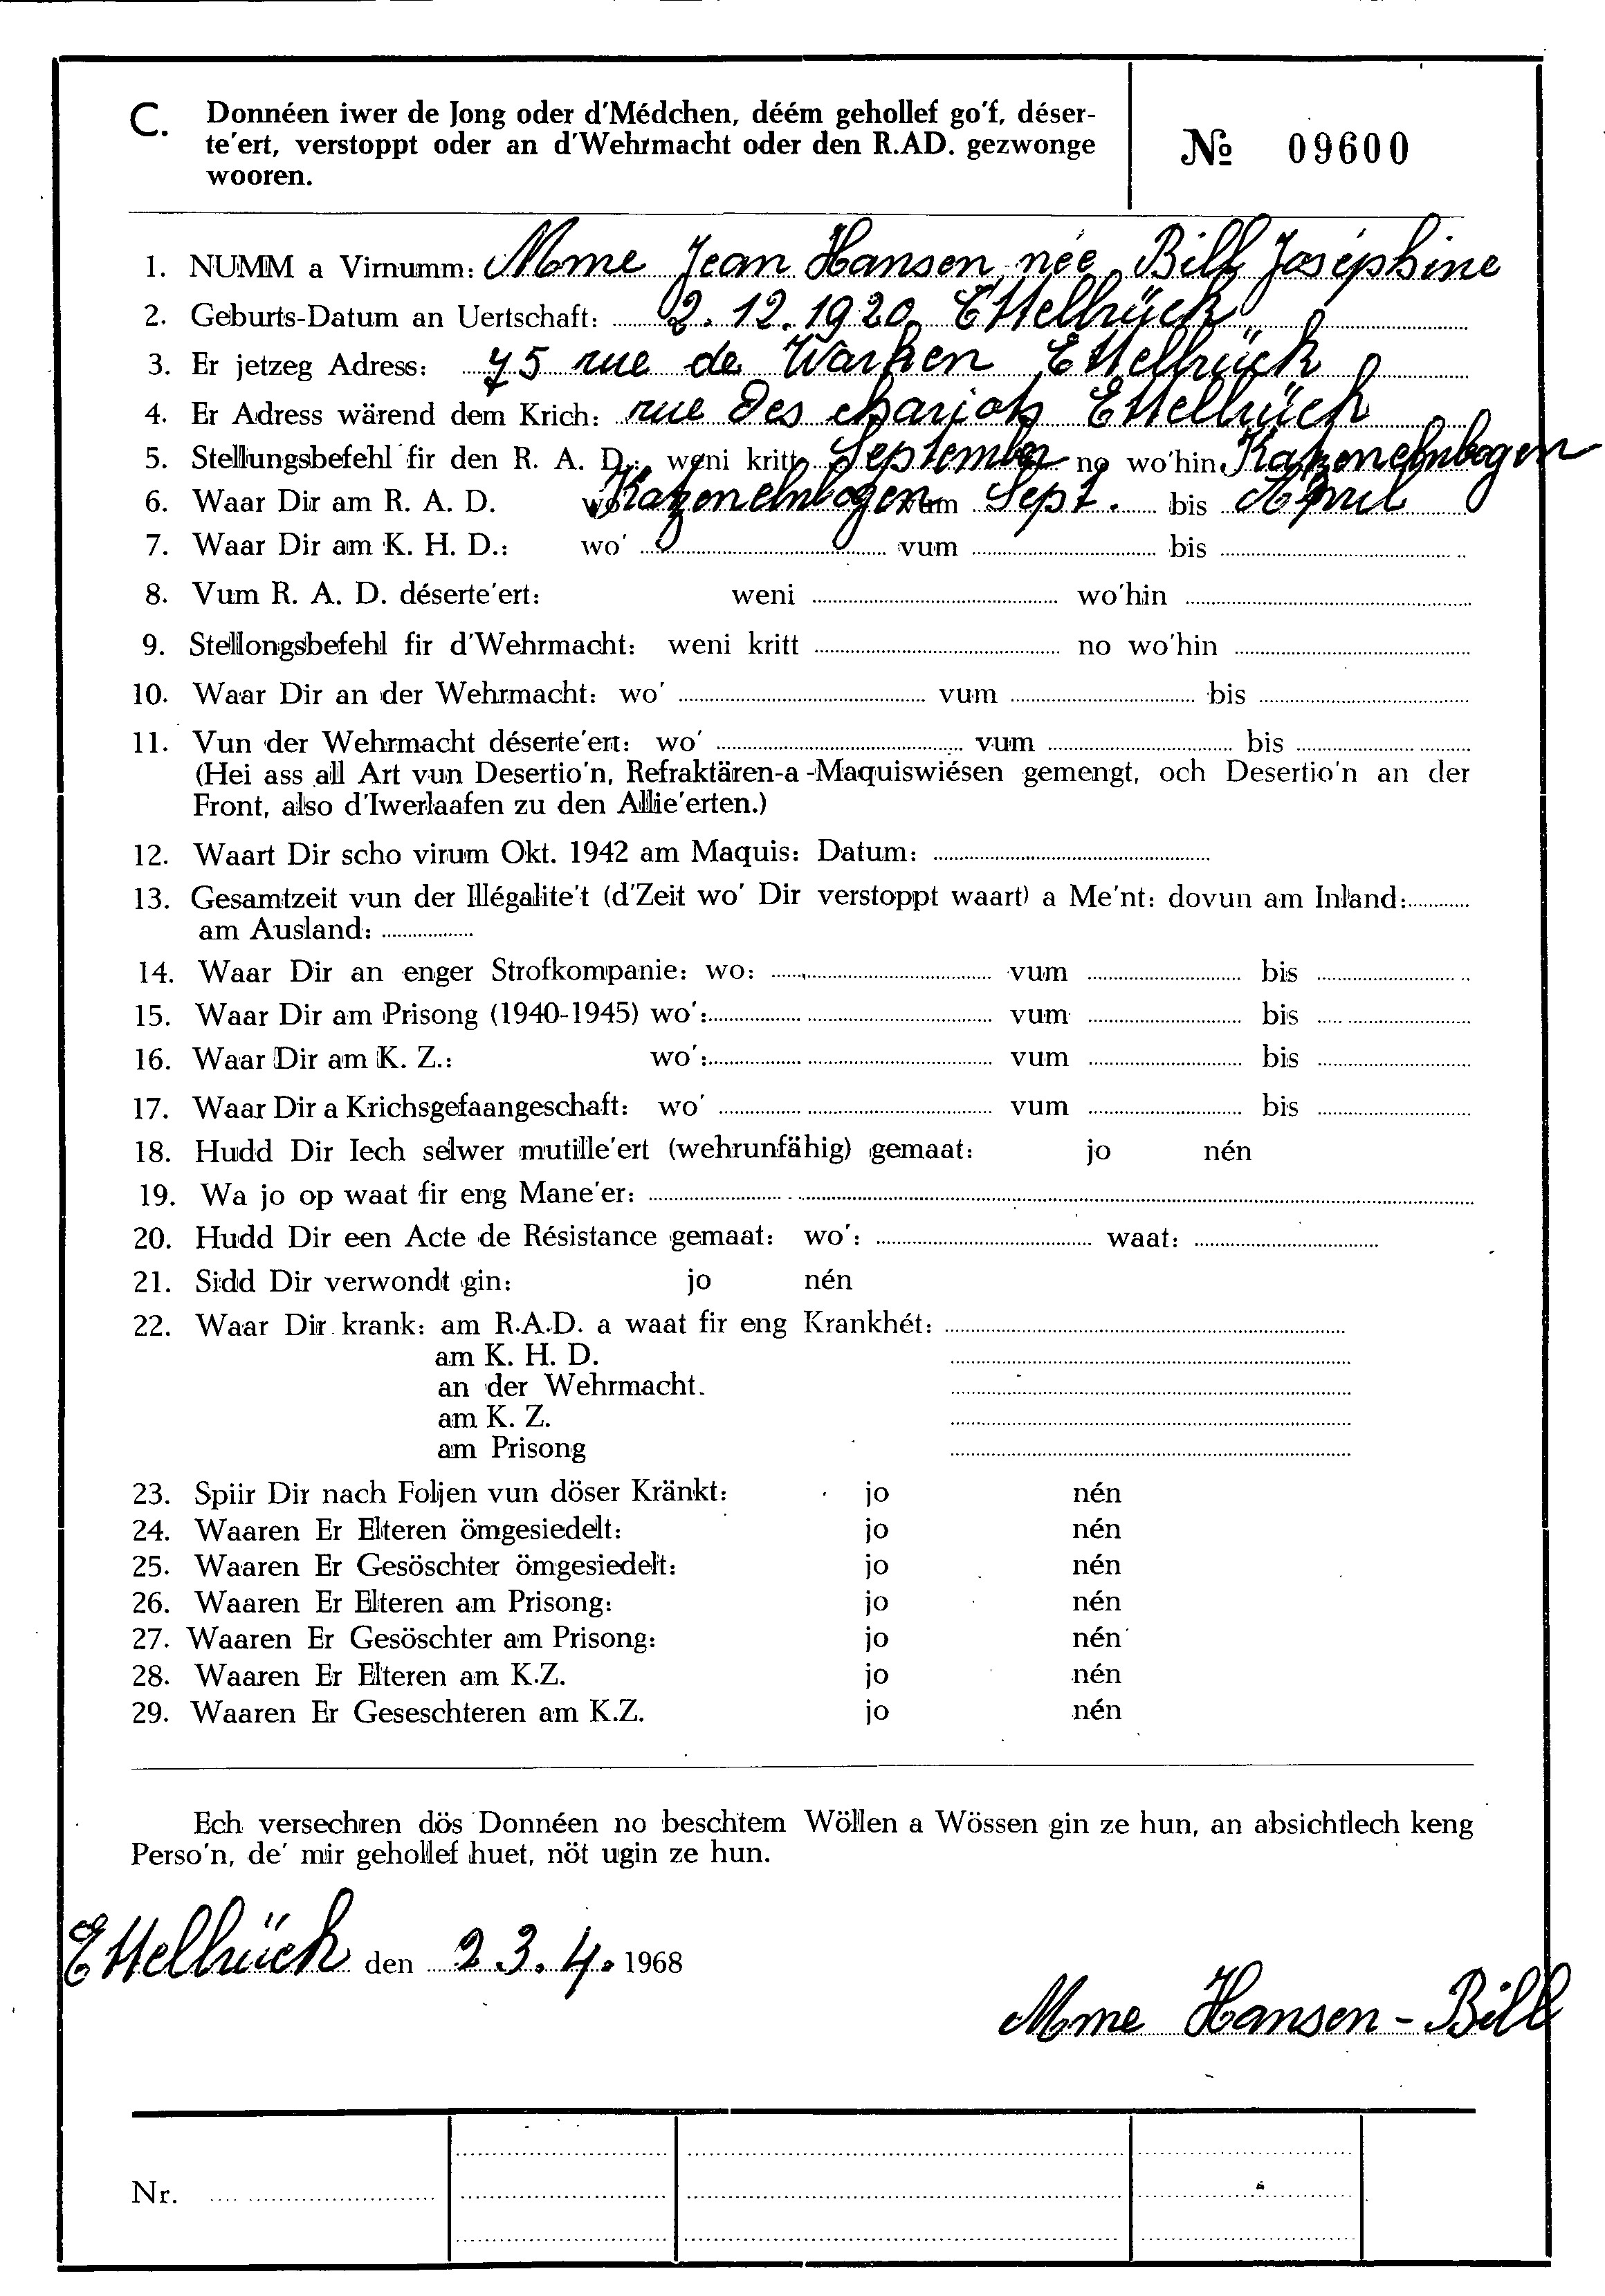 C. Donnéen iwer de Jong oder d'Médchen, déém gehollef go'f, déser-
te'ert, verstoppt oder an d'Wehrmacht oder den R.AD. gezwonge
wooren.
№ 09600
1. NUMM a Virnumm: Mme Jean Hansen née Bill Joséphine
2. Geburts-Datum an Uertschaft: 2.12.1920 Ettelbrück
3. Er jetzeg Adress: 75 rue de Warken Ettelbrück
4. Er Adress wärend dem Krich: rue des chariots Ettelbrück
5. Stellungsbefehl fir den R. A. D.: weni kritt September no wo'hin Katzenelnbogen
6. Waar Dir am R. A. D. wo' Katzenelnbogen vum Sept. bis April
7. Waar Dir am K. H. D.: wo' vum bis
8. Vum R. A. D. déserte'ert: weni wo'hin
9. Stellongsbefehl fir d'Wehrmacht: weni kritt no wo'hin
10. Waar Dir an der Wehrmacht: wo' vum bis
11. Vun der Wehrmacht déserte'ert: wo' vum bis
(Hei ass all Art vun Desertio'n, Refraktären-a-Maquiswiésen gemengt, och Desertio'n an der
Front, also d'Iwerlaafen zu den Allie'erten.)
12. Waart Dir scho virum Okt. 1942 am Maquis: Datum:
13. Gesamtzeit vun der Illégalite't (d'Zeit wo' Dir verstoppt waart) a Me'nt: dovun am Inland:
am Ausland:
14. Waar Dir an enger Strofkompanie: wo: vum bis
15. Waar Dir am Prisong (1940-1945) wo': vum bis
16. Waar Dir am K. Z.: wo': vum bis
17. Waar Dir a Krichsgefaangeschaft: wo' vum bis
18. Hudd Dir Iech selwer mutille'ert (wehrunfähig) gemaat: jo nén
19. Wa jo op waat fir eng Mane'er:
20. Hudd Dir een Acte de Résistance gemaat: wo': waat:
21. Sidd Dir verwondt gin: jo nén
22. Waar Dir krank: am R.A.D. a waat fir eng Krankhét:
am K. H. D.
an der Wehrmacht.
am K. Z.
am Prisong
23. Spiir Dir nach Foljen vun döser Kränkt: jo nén
24. Waaren Er Elteren ömgesiedelt: jo nén
25. Waaren Er Gesöschter ömgesiedelt: jo nén
26. Waaren Er Elteren am Prisong: jo nén
27. Waaren Er Gesöschter am Prisong: jo nén
28. Waaren Er Elteren am K.Z. jo nén
29. Waaren Er Geseschteren am K.Z. jo nén
Ech versechren dös Donnéen no beschtem Wöllen a Wössen gin ze hun, an absichtlech keng
Perso'n, de' mir gehollef huet, nöt ugin ze hun.
Ettelbrück den 23.4. 1968
Mme Hansen-Bill
Nr.